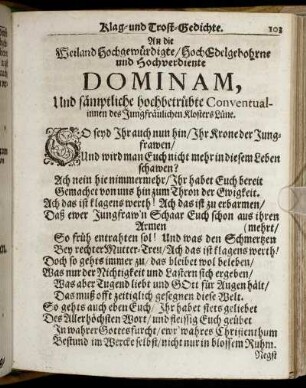 Klag-und Trost-Gedichte. 103
An die
Weiland Hochgewürdigte/HochEdelgebohrne
und Hochverdiente
DOMINAM,
Und sämptliche hochbetrübte Conventual-
innen des Jungfräulichen Klosters Lüne.
SO seyd Ihr auch nun hin/ Ihr Krone der Jung-
frawen/
Und wird man Euch nicht mehr in diesem Leben
schawen?
Ach nein hie nimmermehr/ Ihr habet Euch bereit
Gemachet von uns hin zum Thron der Ewigkeit.
Ach das ist klagens werth! Ach das ist zu erbarmen/
Daß ewer Jungfraw'n Schaar Euch schon aus ihren
Armen (mehrt/
So früh entrahten sol! Und was den Schmertzen
Bey rechter Mutter-Trew/ Ach das ist klagens werth/
Doch so gehts immer zu/ das bleibet wol beleben/
Was nur der Nichtigkeit und Lastern sich ergeben/
Was aber Tugend liebt und GOtt für Augen hält/
Das muß offt zeitiglich gesegnen diese Welt.
So gehts auch eben Euch/ Ihr habet stets geliebet
Des Allerhöchsten Wort/ und fleissig Euch geübet
In wahrer Gottesfurcht/ ewr wahres Christenthum
Bestund im Wercke selbst/ nicht nur in blossem Ruhm.
Negst